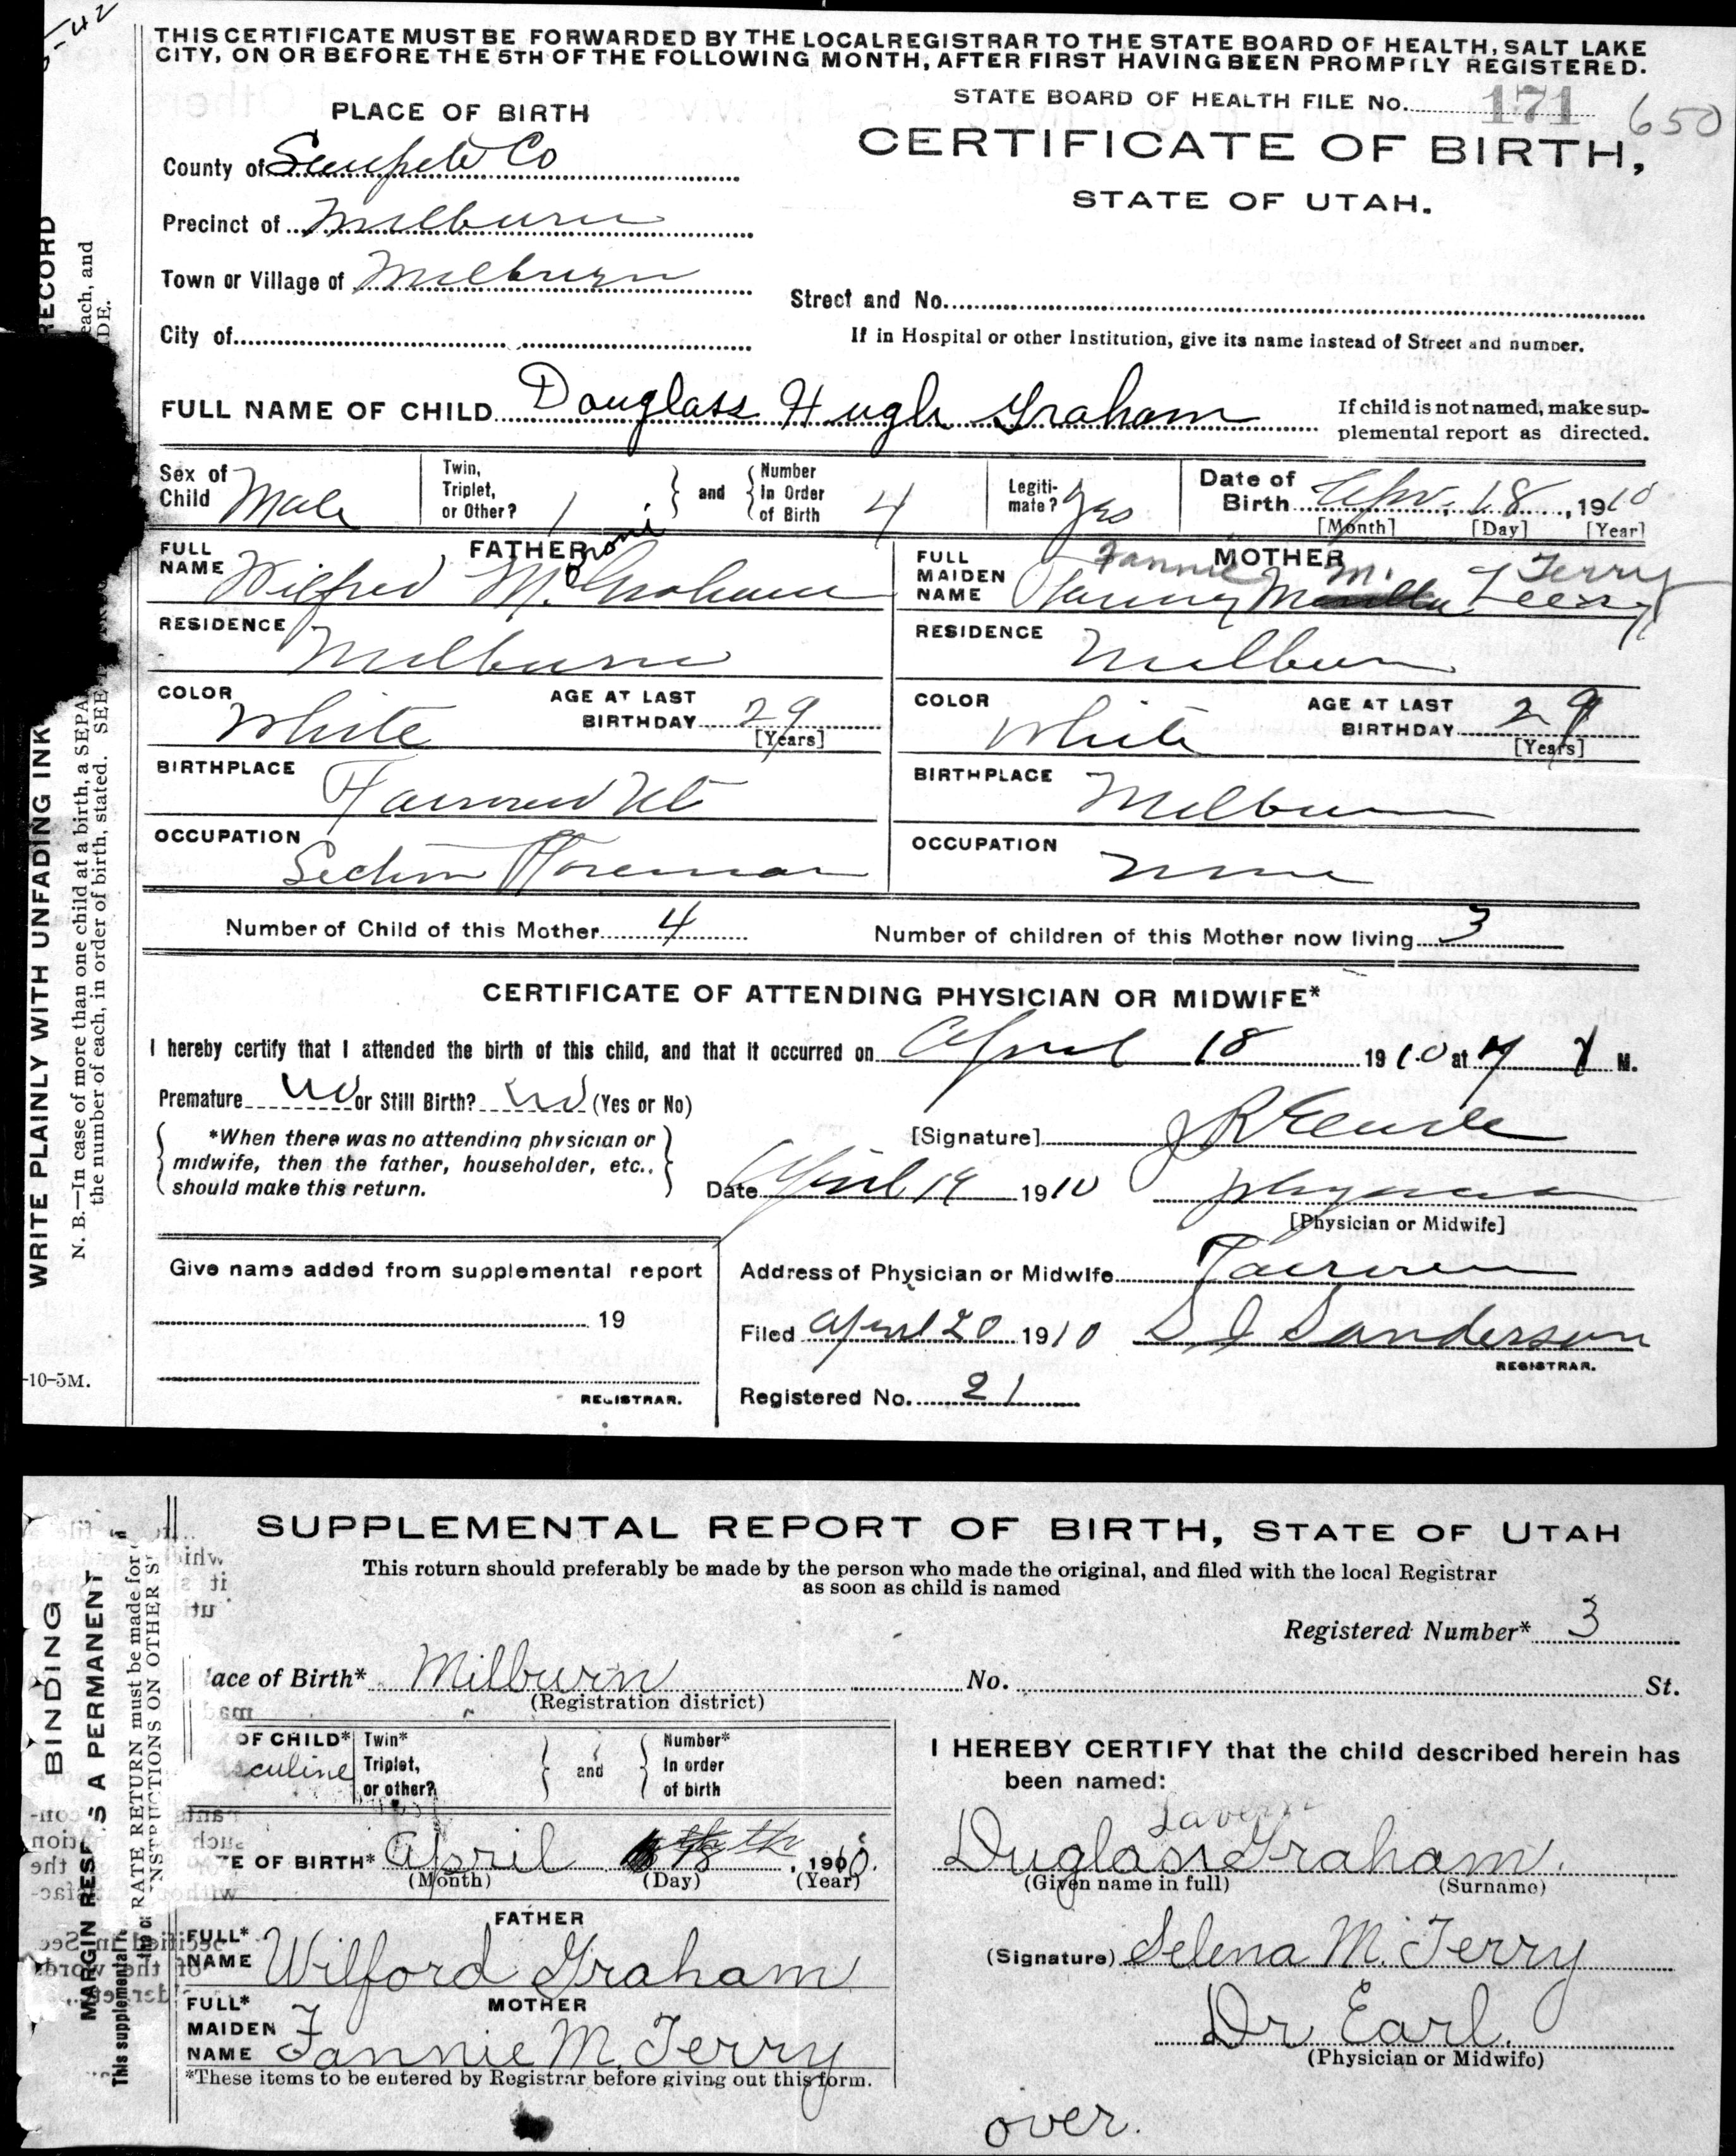 5-42
THIS CERTIFICATE MUST BE FORWARDED BY THE LOCAL REGISTRAR TO THE STATE BOARD OF HEALTH, SALT LAKE
CITY, ON OR BEFORE THE 5TH OF THE FOLLOWING MONTH, AFTER FIRST HAVING BEEN PROMPTLY REGISTERED.
PLACE OF BIRTH
STATE BOARD OF HEALTH FILE No. 171 650
CERTIFICATE OF BIRTH,
STATE OF UTAH.
County of Sanpete Co
Precinct of Milburn
Town or Village of Milburn
Street and No.
City of
If in Hospital or other Institution, give its name instead of Street and number.
FULL NAME OF CHILD Douglass Hugh Graham
If child is not named, make sup-
plemental report as directed.
Sex of Child Male
Twin, Triplet, or Other? 1 and Number In Order of Birth 4
Legiti-mate? Yes
Date of Birth Apr. 18, 1910
[Month] [Day] [Year]
FATHER
FULL NAME Wilfred M. Graham
roni
MOTHER
FULL MAIDEN NAME Fanny Terry
Fannie M. Terry
RESIDENCE Milburn
RESIDENCE Milburn
COLOR White AGE AT LAST BIRTHDAY 29 [Years]
COLOR White AGE AT LAST BIRTHDAY 29 [Years]
BIRTHPLACE Fairview Ut
BIRTHPLACE Milburn
OCCUPATION Section Foreman
OCCUPATION None
Number of Child of this Mother 4 Number of children of this Mother now living 3
CERTIFICATE OF ATTENDING PHYSICIAN OR MIDWIFE*
I hereby certify that I attended the birth of this child, and that it occurred on April 18 1910 at M.
Premature No or Still Birth? No (Yes or No)
*When there was no attending physician or
midwife, then the father, householder, etc.,
should make this return.
[Signature]
Date April 19 1910 Physician
[Physician or Midwife]
Give name added from supplemental report
19
REGISTRAR.
Address of Physician or Midwife Fairview
Filed April 20 1910 Sanderson
REGISTRAR.
Registered No. 21
RECORD
each, and
IDE.
WRITE PLAINLY WITH UNFADING INK
N. B.—In case of more than one child at a birth, a SEPA
the number of each, in order of birth, stated. SEE
-10-5M.
SUPPLEMENTAL REPORT OF BIRTH, STATE OF UTAH
This return should preferably be made by the person who made the original, and filed with the local Registrar
as soon as child is named
Registered Number* 3
ace of Birth* Milburn No. St.
(Registration district)
OF CHILD* culine
Twin* Triplet, or other? and Number* In order of birth
TE OF BIRTH* April 18 th, 1910.
(Month) (Day) (Year)
FATHER
FULL* NAME Wilford Graham
MOTHER
FULL* MAIDEN NAME Fannie M. Terry
*These items to be entered by Registrar before giving out this form.
I HEREBY CERTIFY that the child described herein has
been named:
Lavern
Duglass Graham.
(Given name in full) (Surname)
(Signature) Selena M. Terry
Dr Earl.
(Physician or Midwife)
over.
BINDING
MARGIN RESE S A PERMANENT
This supplemental
RATE RETURN must be made for
INSTRUCTIONS ON OTHER S